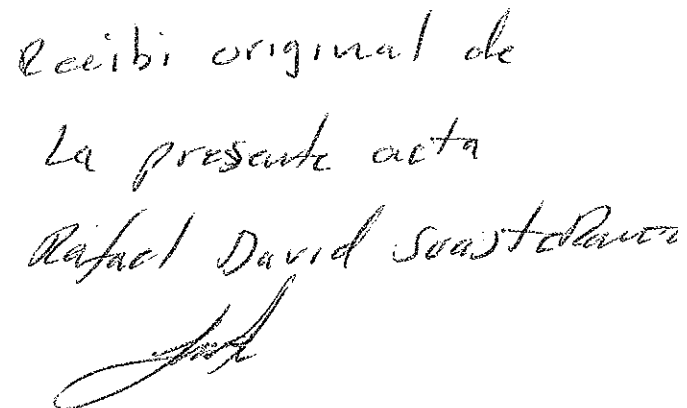 Recibi original de
La presente acta
Rafael David